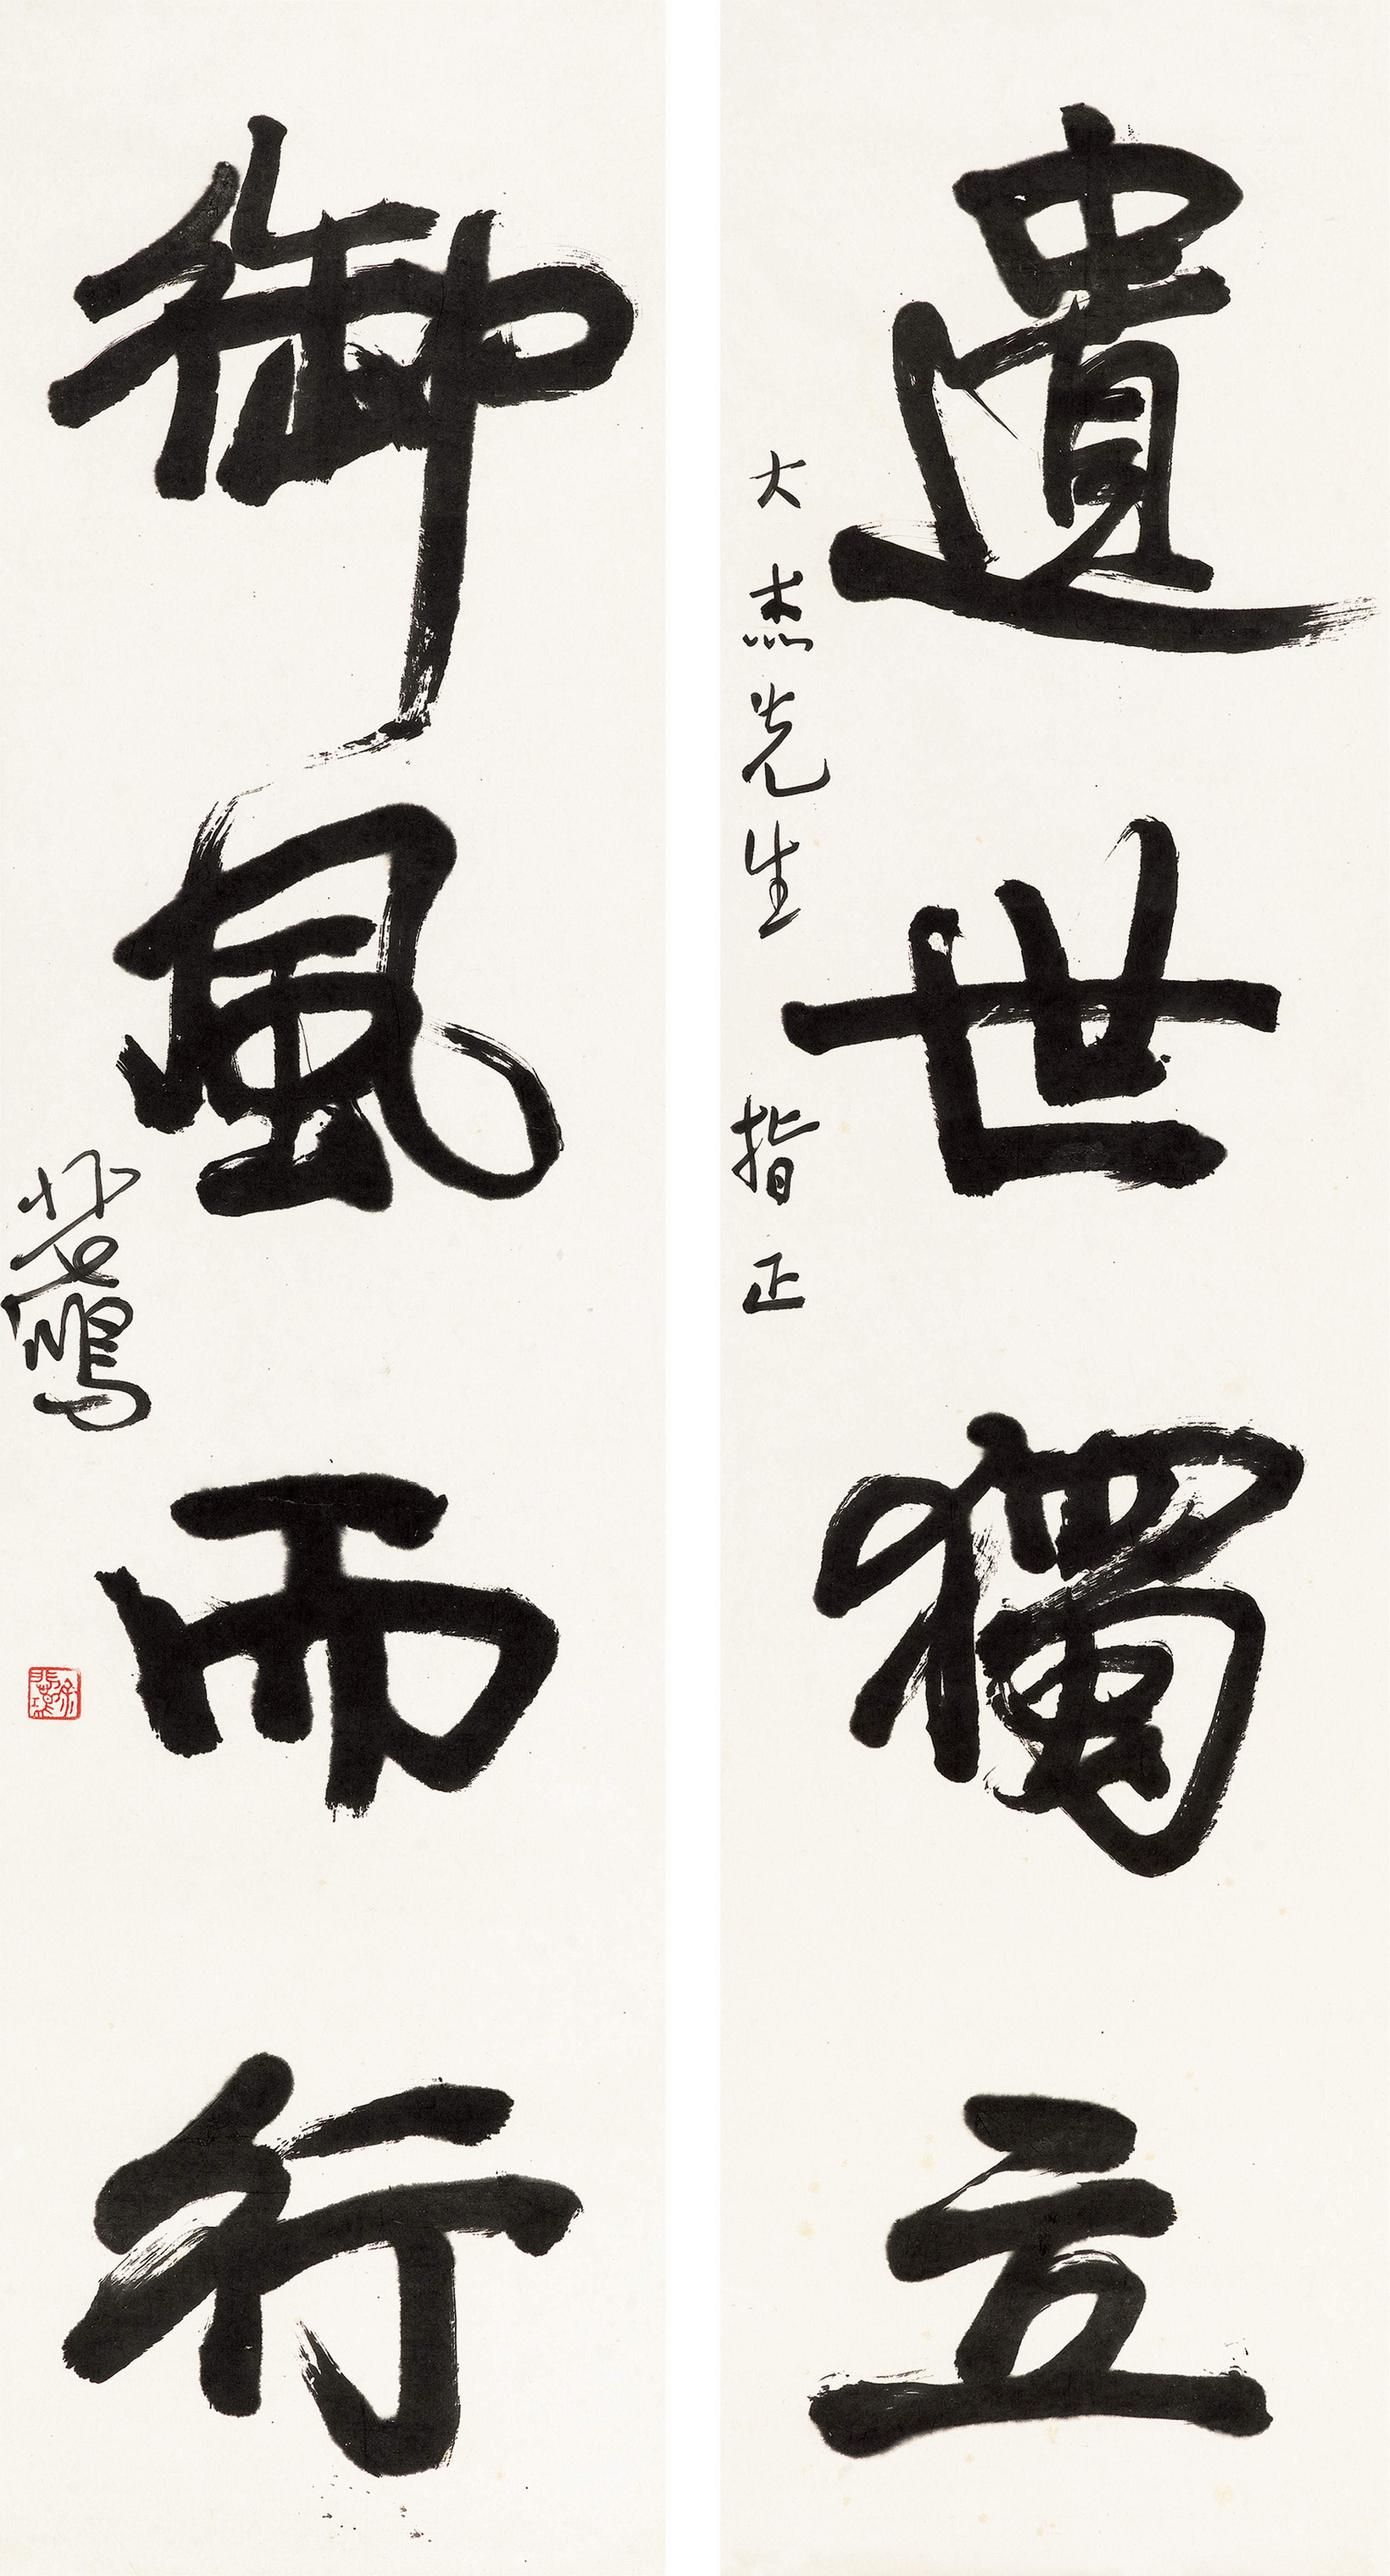 遺世獨立
大杰先生 指正
御風而行
悲鴻
徐悲鴻